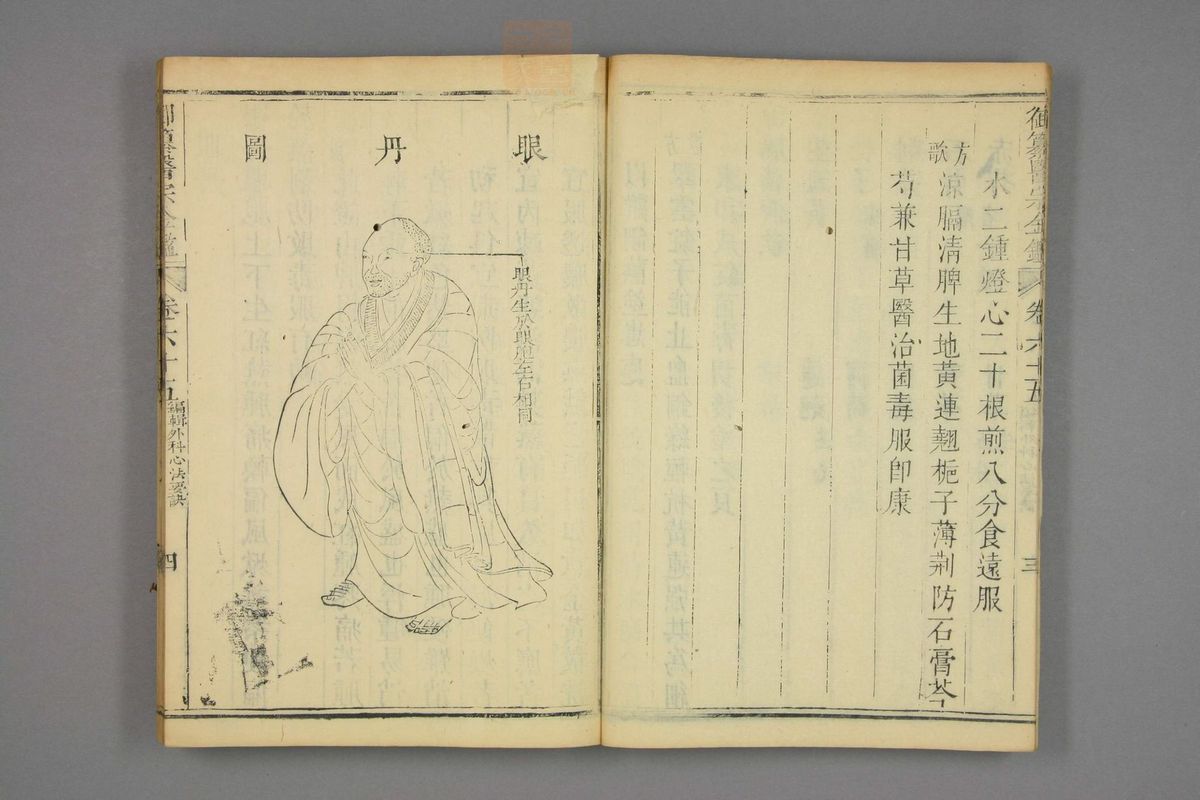 御纂醫宗金鑑
卷六十五
三
水二鍾燈心二十根煎八分食遠服
方歌
涼膈清脾生地黃連翹梔子薄荆防石膏芩
芍兼甘草醫治菌毒服即康
眼丹圖
眼丹生於眼胞左右相同
御纂醫宗金鑑
卷六十五
編輯外科心法要訣
四